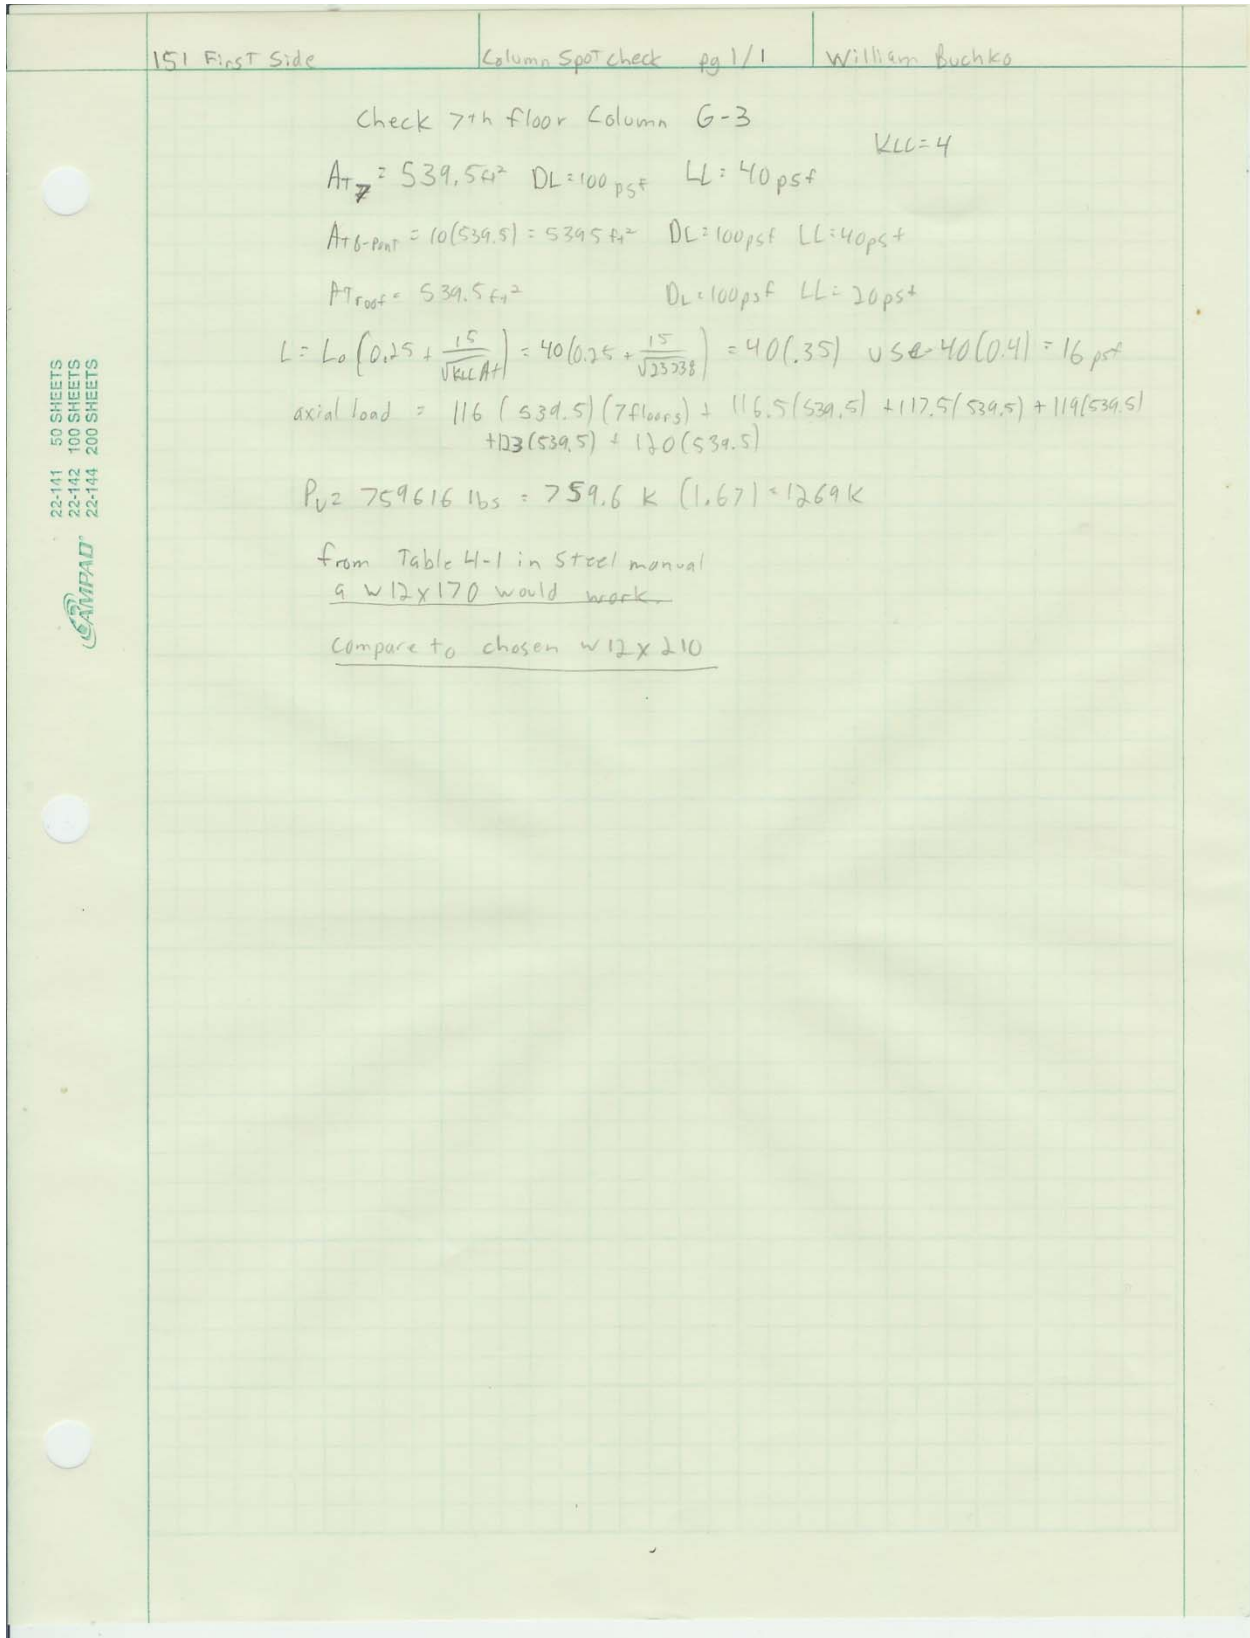 151 First Side Column Spot check pg 1/1 William Buchko
Check 7th floor Column G-3
KLL=4
AT7 = 539.5 ft² DL=100 psf LL=40 psf
= 10(539.5) = 5395 ft² DL=100psf LL=40psf
ATroof = 539.5 ft² DL=100psf LL=20psf
L= Lo (0.25 + 15/√KLL At) = 40(0.25 + 15/ ) = 40(.35) use 40(0.4) = 16 psf
axial load = 116 (539.5)(7floors) + 116.5(539.5) +117.5(539.5) + 119(539.5)
+123(539.5) + 120(539.5)
Pu= 759616 lbs = 759.6 k (1.67) = 1269k
from Table 4-1 in Steel manual
a W12x170 would work.
Compare to chosen W12x210
22-141 50 SHEETS
22-142 100 SHEETS
22-144 200 SHEETS
AMPAD